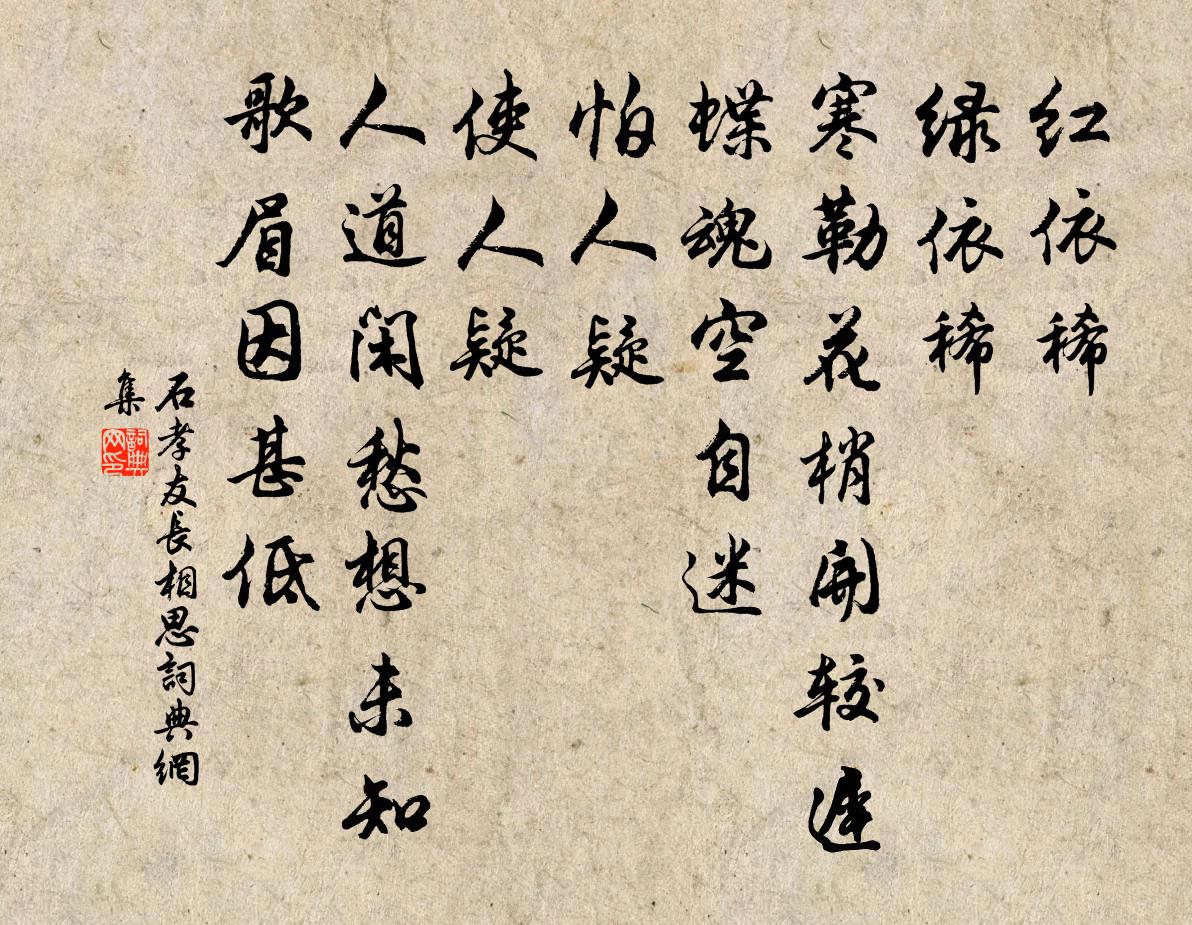 红依稀
绿依稀
寒勒花梢開较遲
蝶魂空自迷
怕人疑
使人疑
人道闲愁想未知
歌眉因甚低
石孝友長相思詞典網
集
詞典
网印